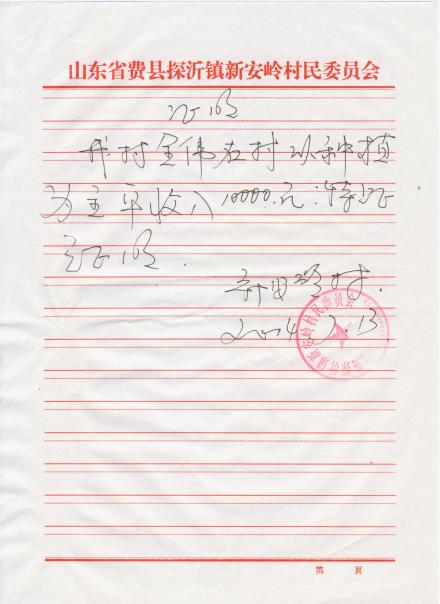 山东省费县探沂镇新安岭村民委员会
证明
我村全伟在村以种植
为主年收入10000.元.特此
证明.
新安岭村.
2014.7.13
探沂镇新安岭村民委员会
第 页